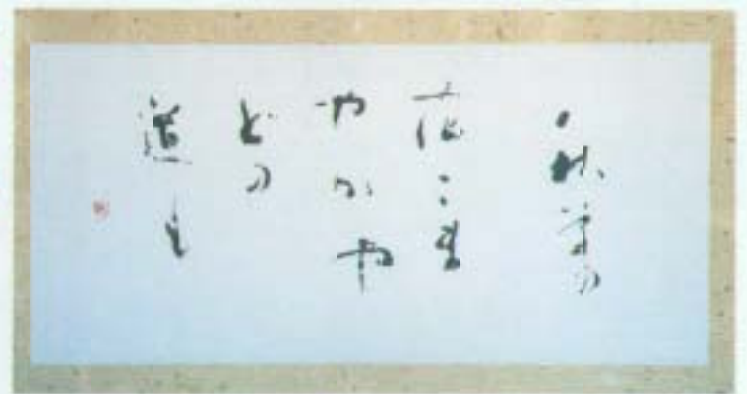 秋草の
花こま
やかや
どの
道も